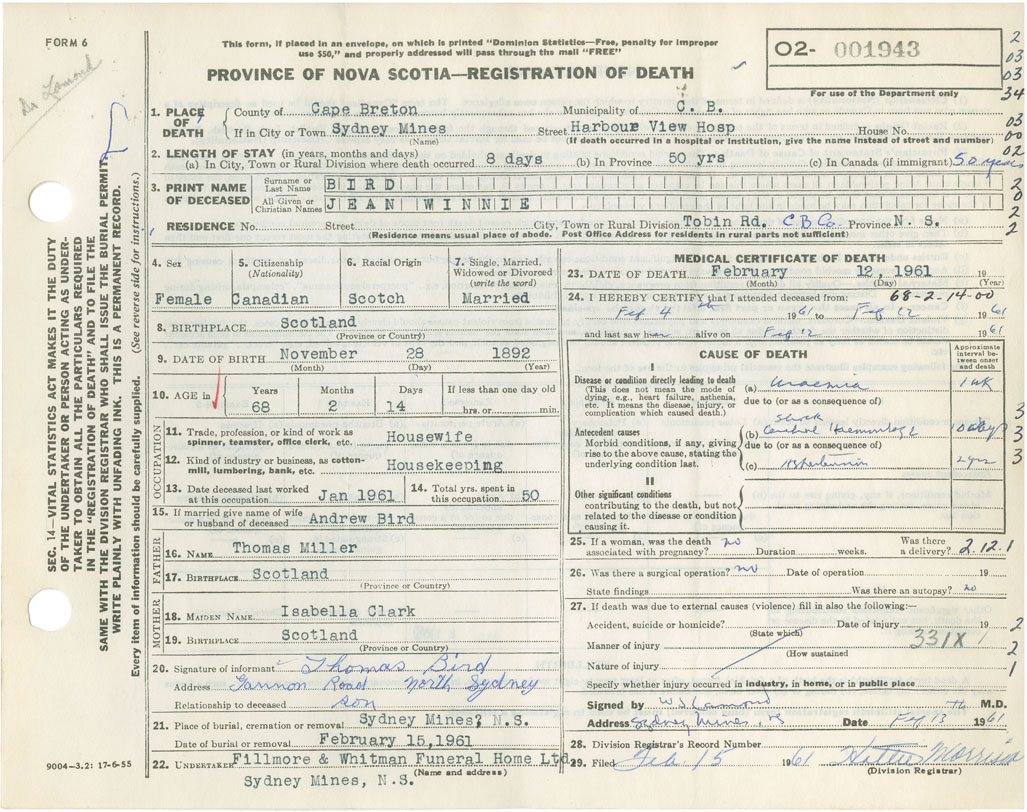 FORM 6
Dr Lamond
This form, if placed in an envelope, on which is printed "Dominion Statistics—Free, penalty for improper
use $50," and properly addressed will pass through the mail "FREE"
PROVINCE OF NOVA SCOTIA—REGISTRATION OF DEATH
02- 001943
For use of the Department only
2
03
03
34
03
00
02
2
0
2
2
SEC. 14—VITAL STATISTICS ACT MAKES IT THE DUTY
OF THE UNDERTAKER OR PERSON ACTING AS UNDER-
TAKER TO OBTAIN ALL THE PARTICULARS REQUIRED
IN THE "REGISTRATION OF DEATH" AND TO FILE THE
SAME WITH THE DIVISION REGISTRAR WHO SHALL ISSUE THE BURIAL PERMIT.
WRITE PLAINLY WITH UNFADING INK. THIS IS A PERMANENT RECORD.
Every item of information should be carefully supplied. (See reverse side for instructions.)
1. PLACE OF DEATH
County of Cape Breton Municipality of C. B.
If in City or Town Sydney Mines Street Harbour View Hosp House No.
(Name) (If death occurred in a hospital or institution, give the name instead of street and number)
2. LENGTH OF STAY (in years, months and days)
(a) In City, Town or Rural Division where death occurred 8 days (b) In Province 50 yrs (c) In Canada (if immigrant) 50 years
3. PRINT NAME OF DECEASED
Surname or Last Name BIRD
All Given or Christian Names JEAN WINNIE
RESIDENCE No. Street City, Town or Rural Division Tobin Rd. C B Co Province N. S.
(Residence means usual place of abode. Post Office Address for residents in rural parts not sufficient)
4. Sex
Female
5. Citizenship
(Nationality)
Canadian
6. Racial Origin
Scotch
7. Single, Married,
Widowed or Divorced
(write the word)
Married
8. BIRTHPLACE Scotland
(Province or Country)
9. DATE OF BIRTH November 28 1892
(Month) (Day) (Year)
10. AGE in
Years Months Days If less than one day old
68 2 14 hrs. or min.
OCCUPATION
11. Trade, profession, or kind of work as
spinner, teamster, office clerk, etc. Housewife
12. Kind of industry or business, as cotton-
mill, lumbering, bank, etc. Housekeeping
13. Date deceased last worked
at this occupation Jan 1961
14. Total yrs. spent in
this occupation 50
15. If married give name of wife
or husband of deceased Andrew Bird
FATHER
16. NAME Thomas Miller
17. BIRTHPLACE Scotland
(Province or Country)
MOTHER
18. MAIDEN NAME Isabella Clark
19. BIRTHPLACE Scotland
(Province or Country)
20. Signature of informant Thomas Bird
Address Gannon Road North Sydney
Relationship to deceased son
21. Place of burial, cremation or removal Sydney Mines, N.S.
Date of burial or removal February 15,1961
22. UNDERTAKER Fillmore & Whitman Funeral Home Ltd.
(Name and address)
Sydney Mines, N.S.
9004—3.2: 17-6-55
MEDICAL CERTIFICATE OF DEATH
23. DATE OF DEATH February 12, 1961 19
(Month) (Day) (Year)
24. I HEREBY CERTIFY that I attended deceased from: 68-2-14-00
Feb 4th 1961 to Feb 12 1961
and last saw her alive on Feb 12 1961
CAUSE OF DEATH
Approximate
interval be-
tween onset
and death
I
Disease or condition directly leading to death
(This does not mean the mode of
dying, e.g., heart failure, asthenia,
etc. It means the disease, injury, or
complication which caused death.)
(a) Uraemia 1 wk
due to (or as a consequence of)
Antecedent causes
Morbid conditions, if any, giving
rise to the above cause, stating the
underlying condition last.
Shock
(b) Cerebral Haemorrhage 10 days
due to (or as a consequence of)
(c) Hypertension 2 yrs
3
3
3
II
Other significant conditions
contributing to the death, but not
related to the disease or condition
causing it.
25. If a woman, was the death
associated with pregnancy? no Duration weeks. Was there
a delivery? 2.12.1
26. Was there a surgical operation? no Date of operation 19
State findings Was there an autopsy? no
27. If death was due to external causes (violence) fill in also the following:—
Accident, suicide or homicide? Date of injury 19 2
(State which)
Manner of injury 331X 2
(How sustained
Nature of injury 1
Specify whether injury occurred in industry, in home, or in public place
Signed by W S Lamond M.D.
Address Sydney Mines, NS Date Feb 13 1961
28. Division Registrar's Record Number
29. Filed Feb 15 1961 Hattie Morrison
(Division Registrar)